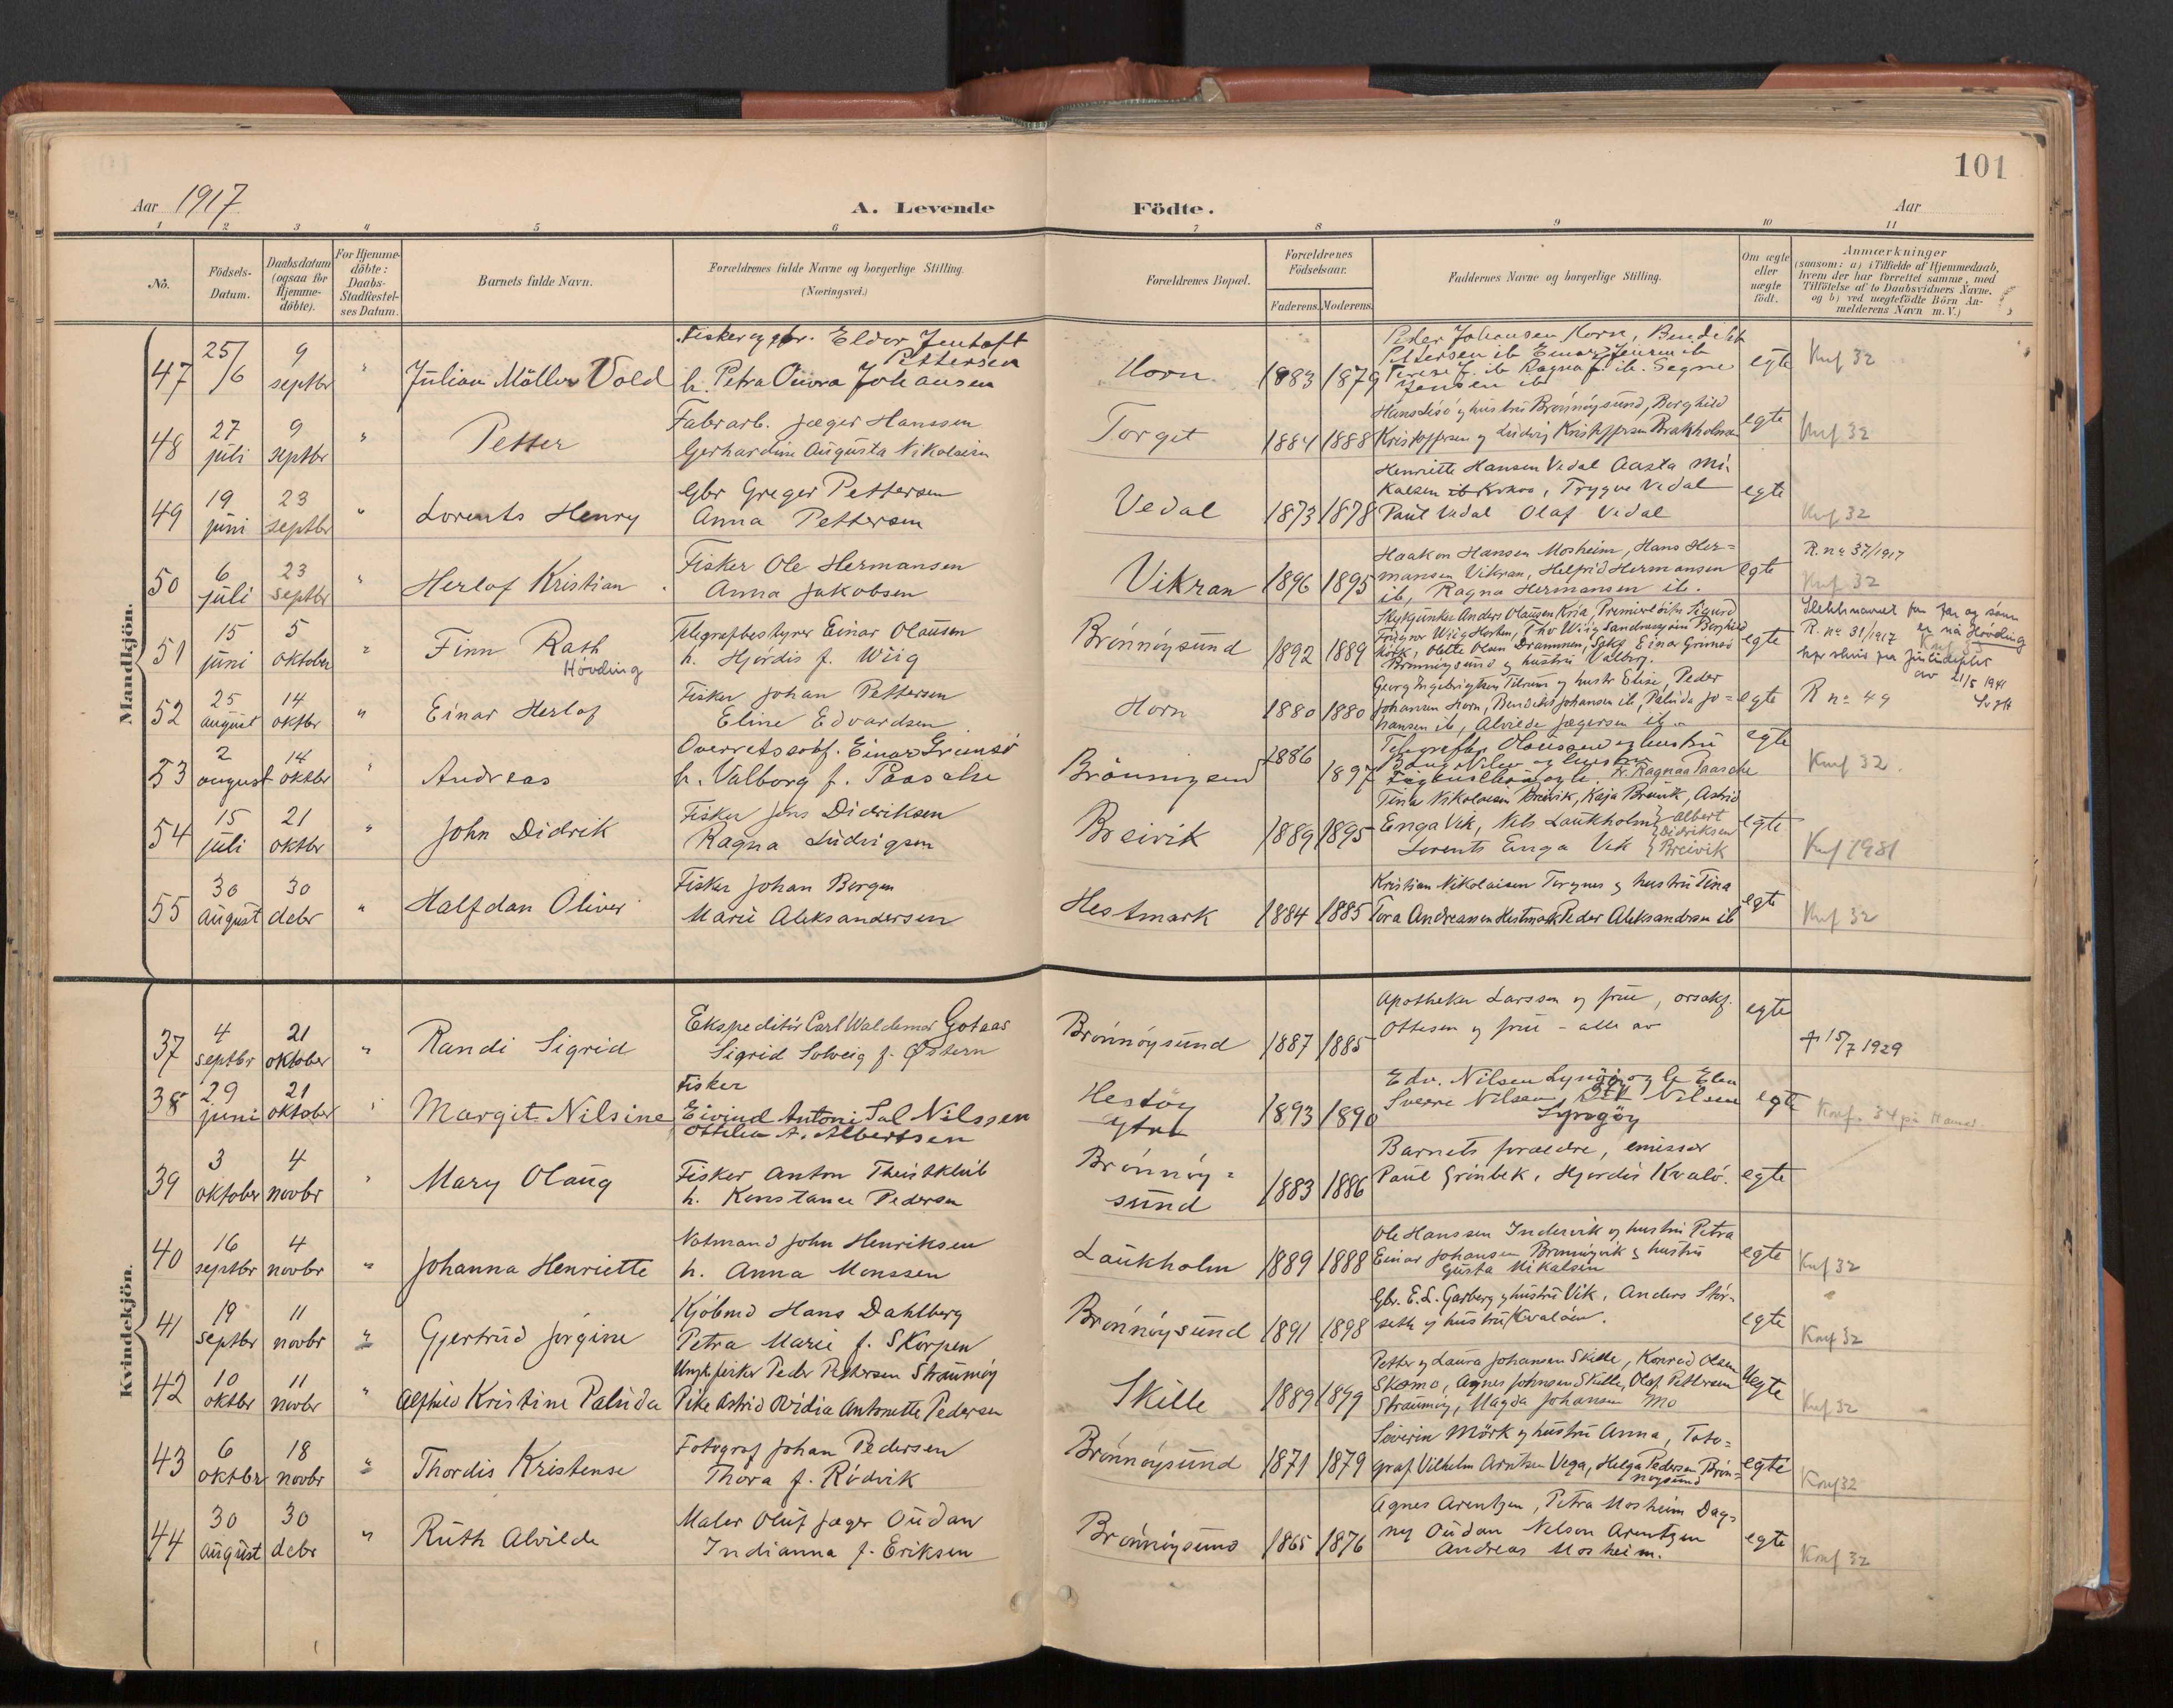 101
Aar 1917
A. Levende Födte.
Aar
1 2 3 4 5 6 7 8 9 10 11
No.
Födsels-
Datum.
Daabsdatum
(ogsaa for
Hjemme-
döbte).
For Hjemme-
döbte:
Daabs-
Stadfæstel-
ses Datum.
Barnets fulde Navn.
Forældrenes fulde Navne og borgerlige Stilling.
(Næringsvei.)
Forældrenes Bopæl.
Forældrenes
Födselsaar.
Faderens. Moderens.
Faddernes Navne og borgerlige Stilling.
Om ægte
eller
uægte
født.
Anmærkninger
(saasom: a) i Tilfælde af Hjemmedaab,
hvem der har forrettet samme, med
Tilföielse af to Daabsvidners Navne.
og b) ved uægtefödte Börn An-
melderens Navn m. V.)
Mandkjön.
47
25/6
9
septbr
"
Julian Möller Vold
Fisker og gbr. Eldor Jentoft
Pettersen
h. Petra Johansen
Horn
1883 1879
Peder Johansen Horn, Bendikt
Pettersen ib Einar Jensen ib
Jensen ib
egte
Knf 32
48
27
juli
9
septbr
"
Petter
Fabrarb. Jæger Hanssen
Gerhardine Augusta Nikolaisen
Torget
1884 1888
Hans Lisö og hustru Brönnöysund, Borghild
Kristoffersen og Ludvig Kristoffersen
egte
Knf 32
49
19
juni
23
septbr
"
Lorents Henry
Gbr Greger Pettersen
Anna Pettersen
Vedal
1873 1878
Henriette Hansen Vedal Aasta Mi-
kalsen ib, Trygve Vedal
Paul Vedal Olaf Vedal
egte
Knf 32
50
6
juli
23
septbr
"
Herlof Kristian
Fisker Ole Hermansen
Anna Jakobsen
Vikran
1896 1895
Haakon Hansen Mosheim, Hans Her=
mansen Vikran, Helfrid Hermansen
ib, Ragna Hermansen ib.
egte
R. no 37/1917
Knf 32
51
15
juni
5
oktober
"
Finn Rath
Hövding
Telegrafbestyrer Einar Olaussen
h. Hjördis f. Wiig
Brönnöysund
1892 1889
Anders Olaussen Kria, Premierlöitn Sigurd
Wiig Horten, Thor Wiig Sandnessjöen Borghild
Mörk, Olette Olsen Drammen, Sakf Einar Grimsö
Brönnöysund og hustru Valborg.
egte
Slektnavnet for far og sönn
er nå Hövding
R. no 31/1917
av 21/5 1941
52
25
august
14
oktbr
"
Einar Herlof
Fisker Johan Pettersen
Eline Edvardsen
Horn
1880 1880
Georg Ingebrigtsen Tilrum og hustr Elise, Peder
Johansen Horn, Bendikt Johansen ib, Palnda Jo=
hansen ib, Alvilde Jægersen ib.
egte
R no 49
53
2
august
14
oktbr
"
Andreas
Overretssakf. Einar Grimsö
h. Valborg f. Paasche
Brönnöysund
1886
1897
Telegrafbs Olaussen og hustru
Fr. Ragnaa Paasche
egte
Knf 32.
54
15
juli
21
oktbr
"
John Didrik
Fisker Jens Didriksen
Ragna Ludvigsen
Breivik
1889 1895
Tina Nikolaisen Breivik, Kaja Breivik, Astrid
Enga Vik, Nils Laukholm Albert
Lorents Enga Vik Didriksen
Breivik
egte
Knf 1931
55
30
august
30
debr
"
Halfdan Oliver
Fisker Johan Bergen
Marie Aleksandersen
Hestmark
1884 1885
Kristian Nikolaisen Torgnes og hustru Tina
Tora Andreassen Hestmark Peder Aleksandersen ib
egte
Knf 32
Kvindekjön.
37
4
septbr
21
oktober
"
Randi Sigrid
Ekspeditör Carl Waldemar Gotaas
Sigrid Solveig f. Østern
Brönnöysund
1887 1885
Apotheker Larssen og frue, orsakf.
Ottesen og frue - alle av
egte
+ 15/7 1929
38
29
juni
21
oktober
"
Margit Nilsine
Fisker
Eivind Antoni Sal Nilssen
Ottilia A. Albertsen
Hestöy
ytre
1893 1890
Edv. Nilsen Lyngöy og h Elen
Sverre Nilsen, Nilsen
Lyngöy
egte
Konf. 34 på Hamar
39
3
oktober
4
novbr
"
Mary Olaug
Fisker Anton Theistklub
h. Konstance Pedersen
Brönnöy=
sund
1883 1886
Barnets forældre, emissær
Paul Grönbek, Hjördis Kvalö.
egte
40
16
septbr
4
novbr
"
Johanna Henriette
Notmand John Henriksen
h. Anna Monssen
Laukholm
1889 1888
Ole Hanssen Indervik og hustru Petra
Einar Johansen Brönnöyvik og hustru
Gusta Mikalsen
egte
Knf 32
41
19
septbr
11
novbr
"
Gjertrud Jörgine
Kjöbmd Hans Dahlberg
Petra Marie f. Skorpen
Brönnöysund
1891 1898
Gbr. E. L. Garberg og hustru Vik, Anders Stör-
seth og hustru Kvalöen.
egte
Knf 32
42
10
oktbr
11
novbr
"
Alfhild Kristine Palnda
Ungk. fisker Peder Pettersen Straumöy
Pike Astrid Ovidia Antonette Pedersen
Skille
1889 1899
Petter og Laura Johansen Skille, Konrad Olsen
Skomo, Agnes Johnsen Skille, Olaf Pettersen
Straumöy, Magda Johansen Mo
Uegte
Knf 32
43
6
oktbr
18
novbr
"
Thordis Kristense
Fotograf Johan Pedersen
Thora f. Rödvik
Brönnöysund
1871 1879
Severin Mörk og hustru Anna, Foto=
graf Vilhelm Arntsen Vega, Helga Pedersen Brön=
nöysund
egte
Konf 32
44
30
august
30
debr
"
Ruth Alvilde
Maler Oluf Jæger Oudan
Indianna f. Eriksen
Brönnöysund
1865 1876
Agnes Arentzen, Petra Mosheim Dag=
ny Oudan Nelson Arentzen
Andreas Mosheim.
egte
Konf 32